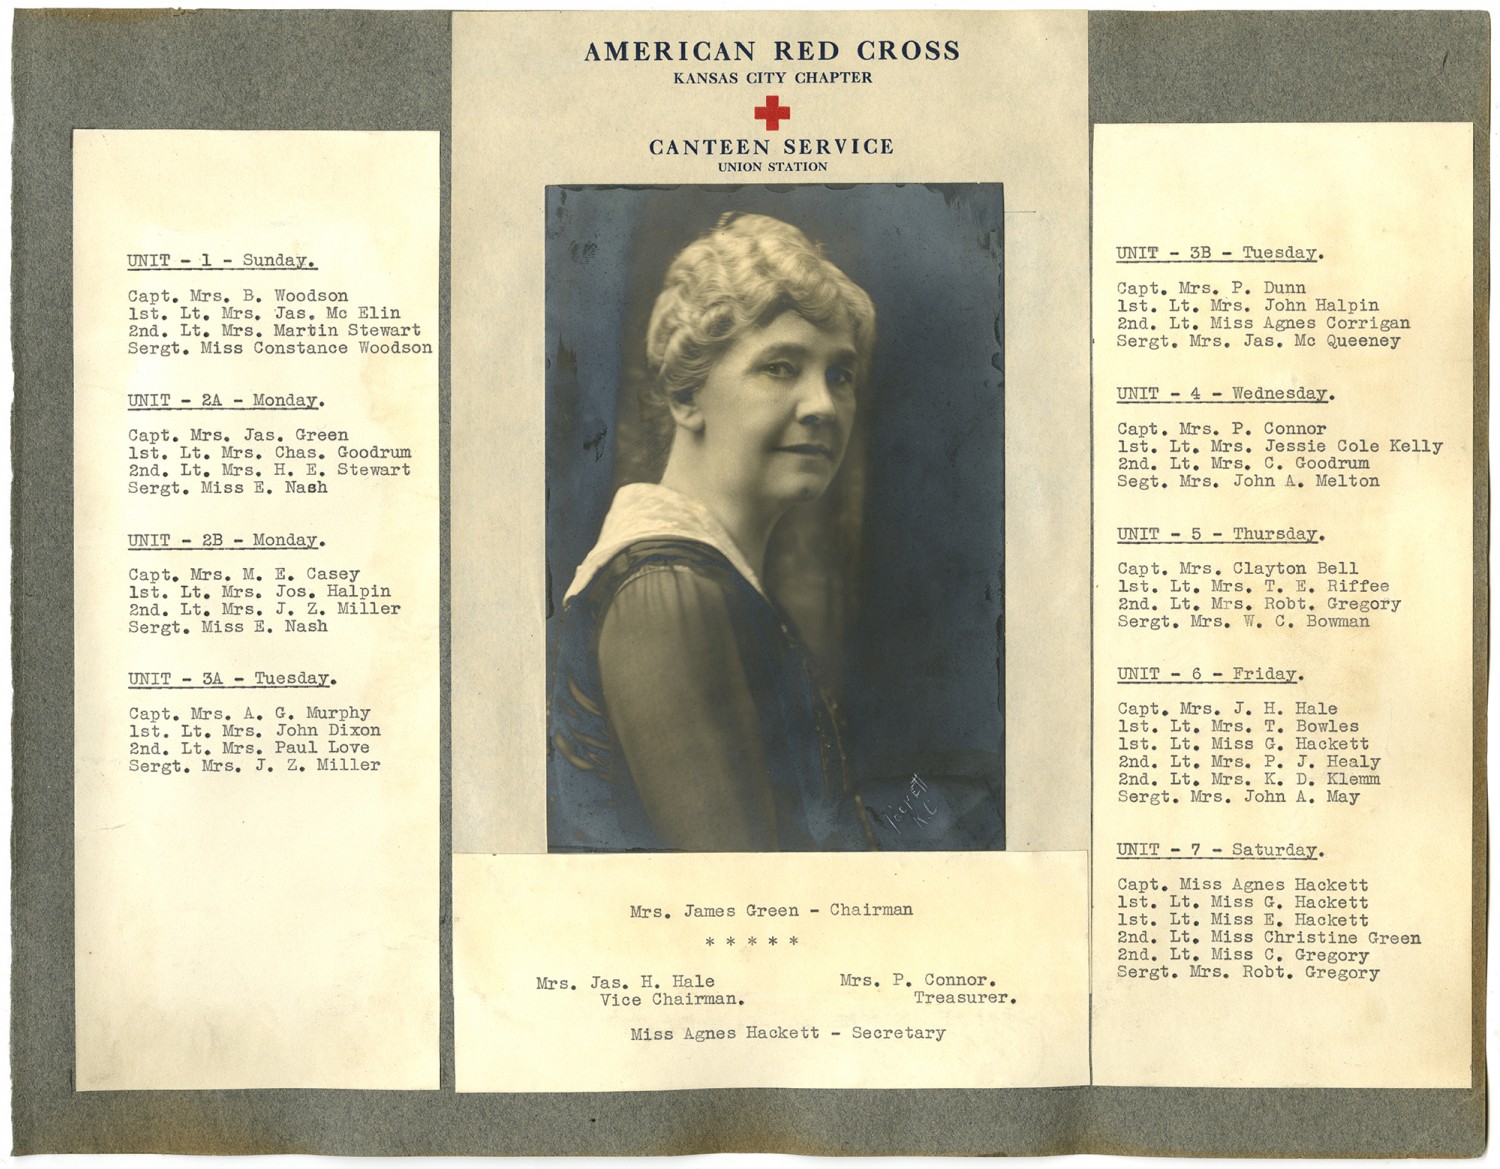 AMERICAN RED CROSS
KANSAS CITY CHAPTER
CANTEEN SERVICE
UNION STATION
UNIT - 1 - Sunday.
Capt. Mrs. B. Woodson
1st. Lt. Mrs. Jas. Mc Elin
2nd. Lt. Mrs. Martin Stewart
Sergt. Miss Constance Woodson
UNIT - 2A - Monday.
Capt. Mrs. Jas. Green
1st. Lt. Mrs. Chas. Goodrum
2nd. Lt. Mrs. H. E. Stewart
Sergt. Miss E. Nash
UNIT - 2B - Monday.
Capt. Mrs. M. E. Casey
1st. Lt. Mrs. Jos. Halpin
2nd. Lt. Mrs. J. Z. Miller
Sergt. Miss E. Nash
UNIT - 3A - Tuesday.
Capt. Mrs. A. G. Murphy
1st. Lt. Mrs. John Dixon
2nd. Lt. Mrs. Paul Love
Sergt. Mrs. J. Z. Miller
K.C.
Mrs. James Green - Chairman
* * * * *
Mrs. Jas. H. Hale
Vice Chairman.
Mrs. P. Connor.
Treasurer.
Miss Agnes Hackett - Secretary
UNIT - 3B - Tuesday.
Capt. Mrs. P. Dunn
1st. Lt. Mrs. John Halpin
2nd. Lt. Miss Agnes Corrigan
Sergt. Mrs. Jas. Mc Queeney
UNIT - 4 - Wednesday.
Capt. Mrs. P. Connor
1st. Lt. Mrs. Jessie Cole Kelly
2nd. Lt. Mrs. C. Goodrum
Segt. Mrs. John A. Melton
UNIT - 5 - Thursday.
Capt. Mrs. Clayton Bell
1st. Lt. Mrs. T. E. Riffee
2nd. Lt. Mrs. Robt. Gregory
Sergt. Mrs. W. C. Bowman
UNIT - 6 - Friday.
Capt. Mrs. J. H. Hale
1st. Lt. Mrs. T. Bowles
1st. Lt. Miss G. Hackett
2nd. Lt. Mrs. P. J. Healy
2nd. Lt. Mrs. K. D. Klemm
Sergt. Mrs. John A. May
UNIT - 7 - Saturday.
Capt. Miss Agnes Hackett
1st. Lt. Miss G. Hackett
1st. Lt. Miss E. Hackett
2nd. Lt. Miss Christine Green
2nd. Lt. Miss C. Gregory
Sergt. Mrs. Robt. Gregory